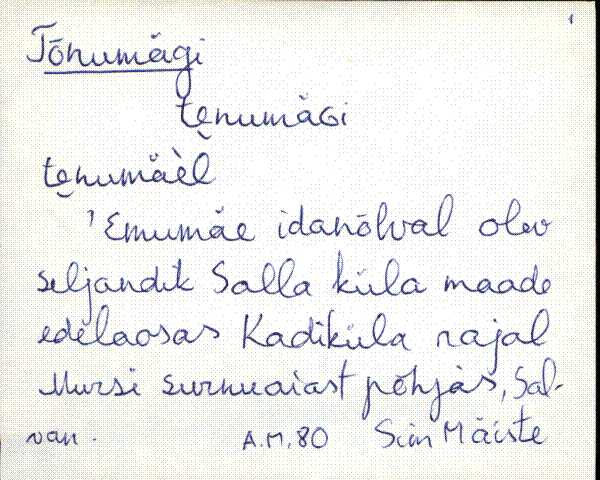 1
Tõnumägi
te̮numäGi
te̮numäèl
'Emumäe idanõlval olev
seljandik Salla küla maade
edelaosas Kadiküla rajal
Mursi surnuaiast põhjas, Sal-
van. A.M. 80 Siim Mäiste